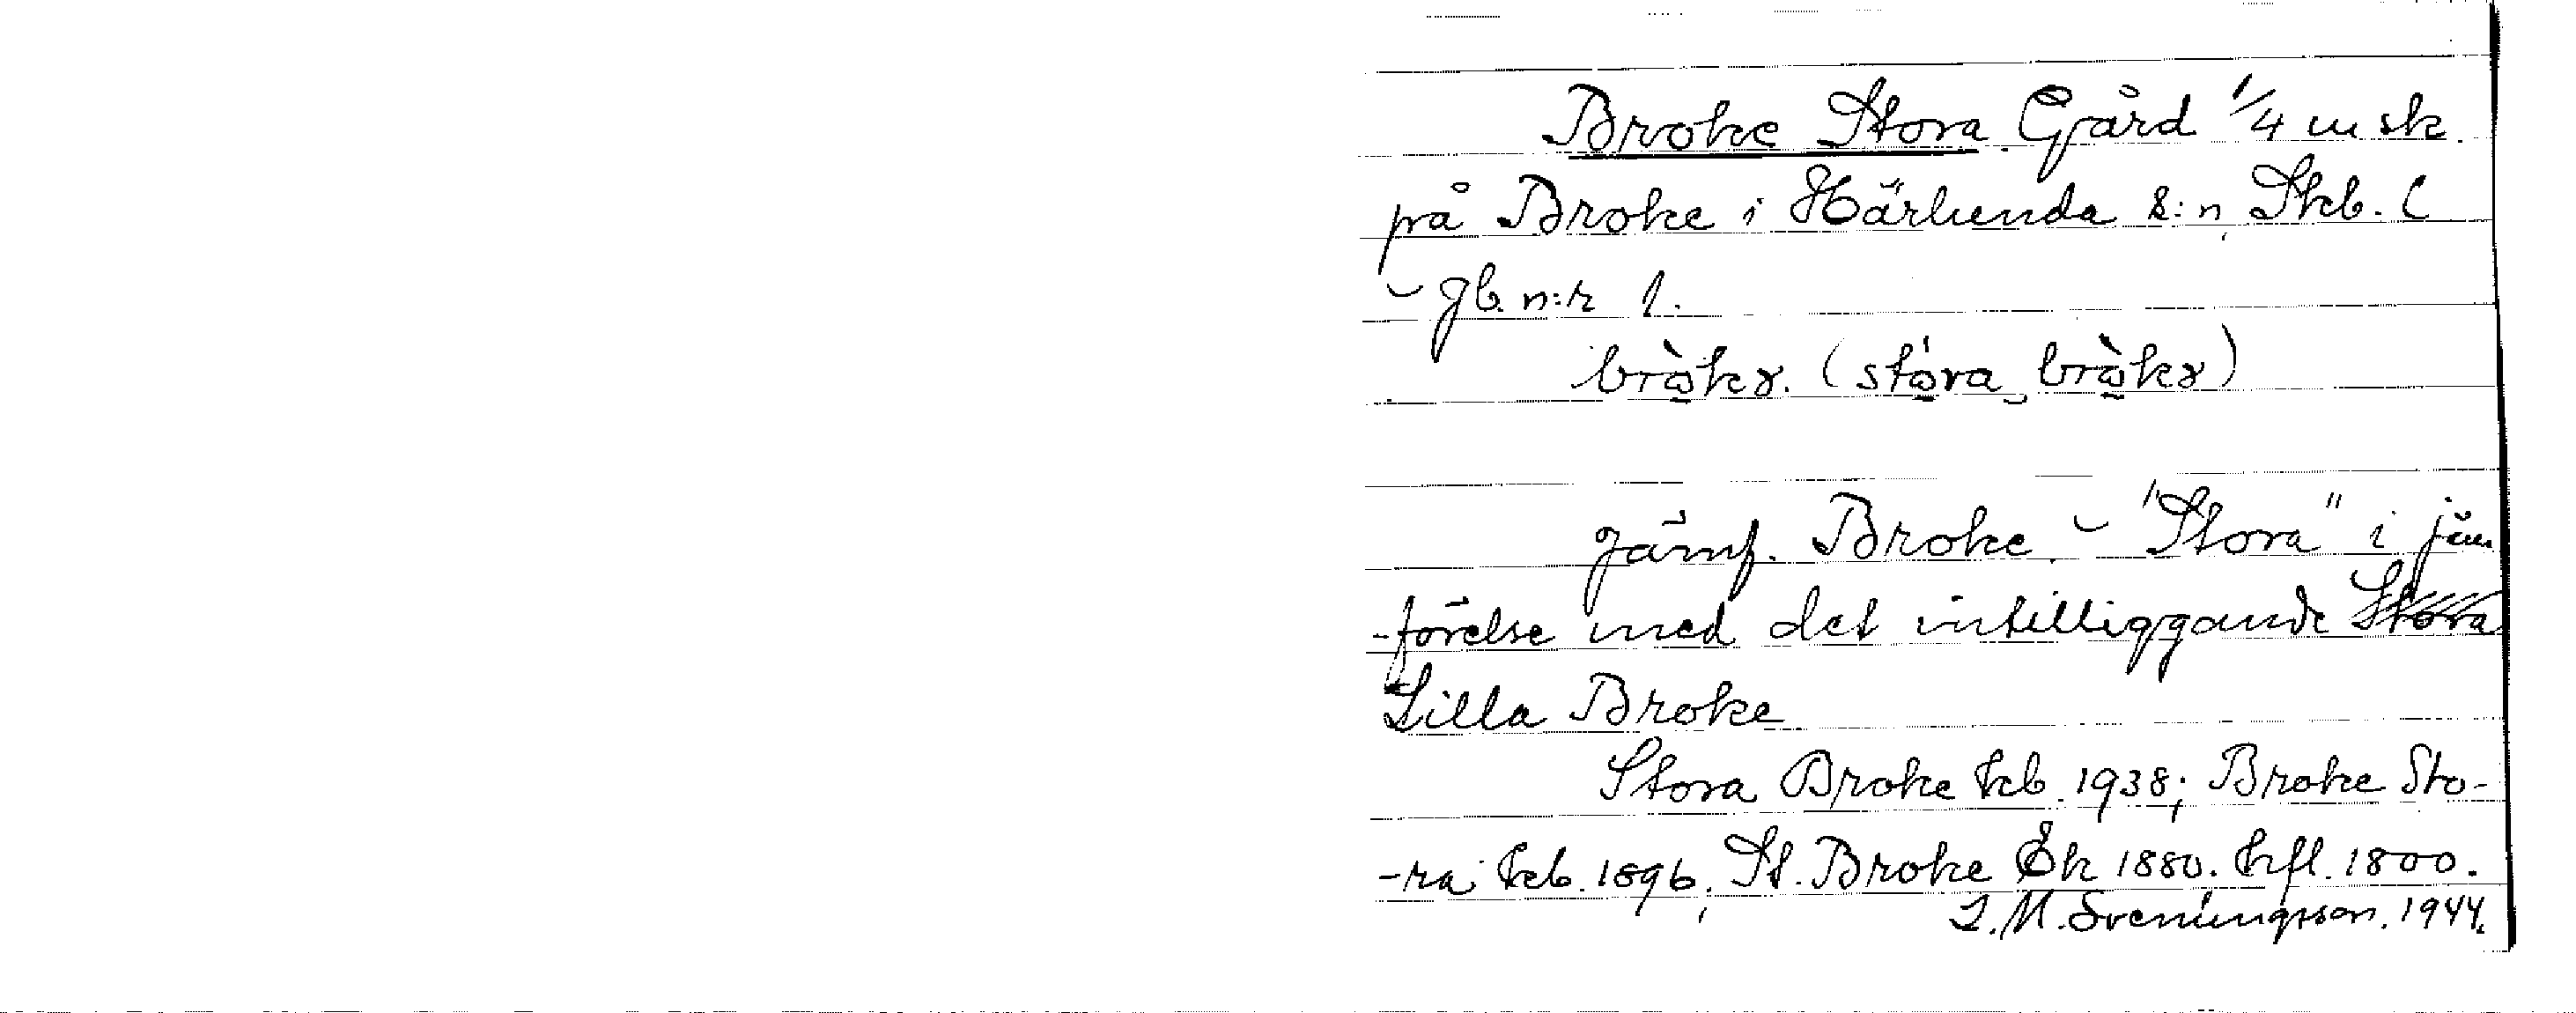 Broke Stora Gård 1/4 m sk.
på Broke i Härlunda s:n, Skb. l
- gb. n:r 1.
bròkɤ. (stóra bròkɤ)
Jämf. Broke. - "Stora" i jäm
-förelse med det intilliggande Stora
Lilla Broke
Stora Broke kb 1938; Broke Sto-
-ra kb. 1896, St. Broke Ek 1880. hfl. 1800.
I. M. Sveningsson. 1944.